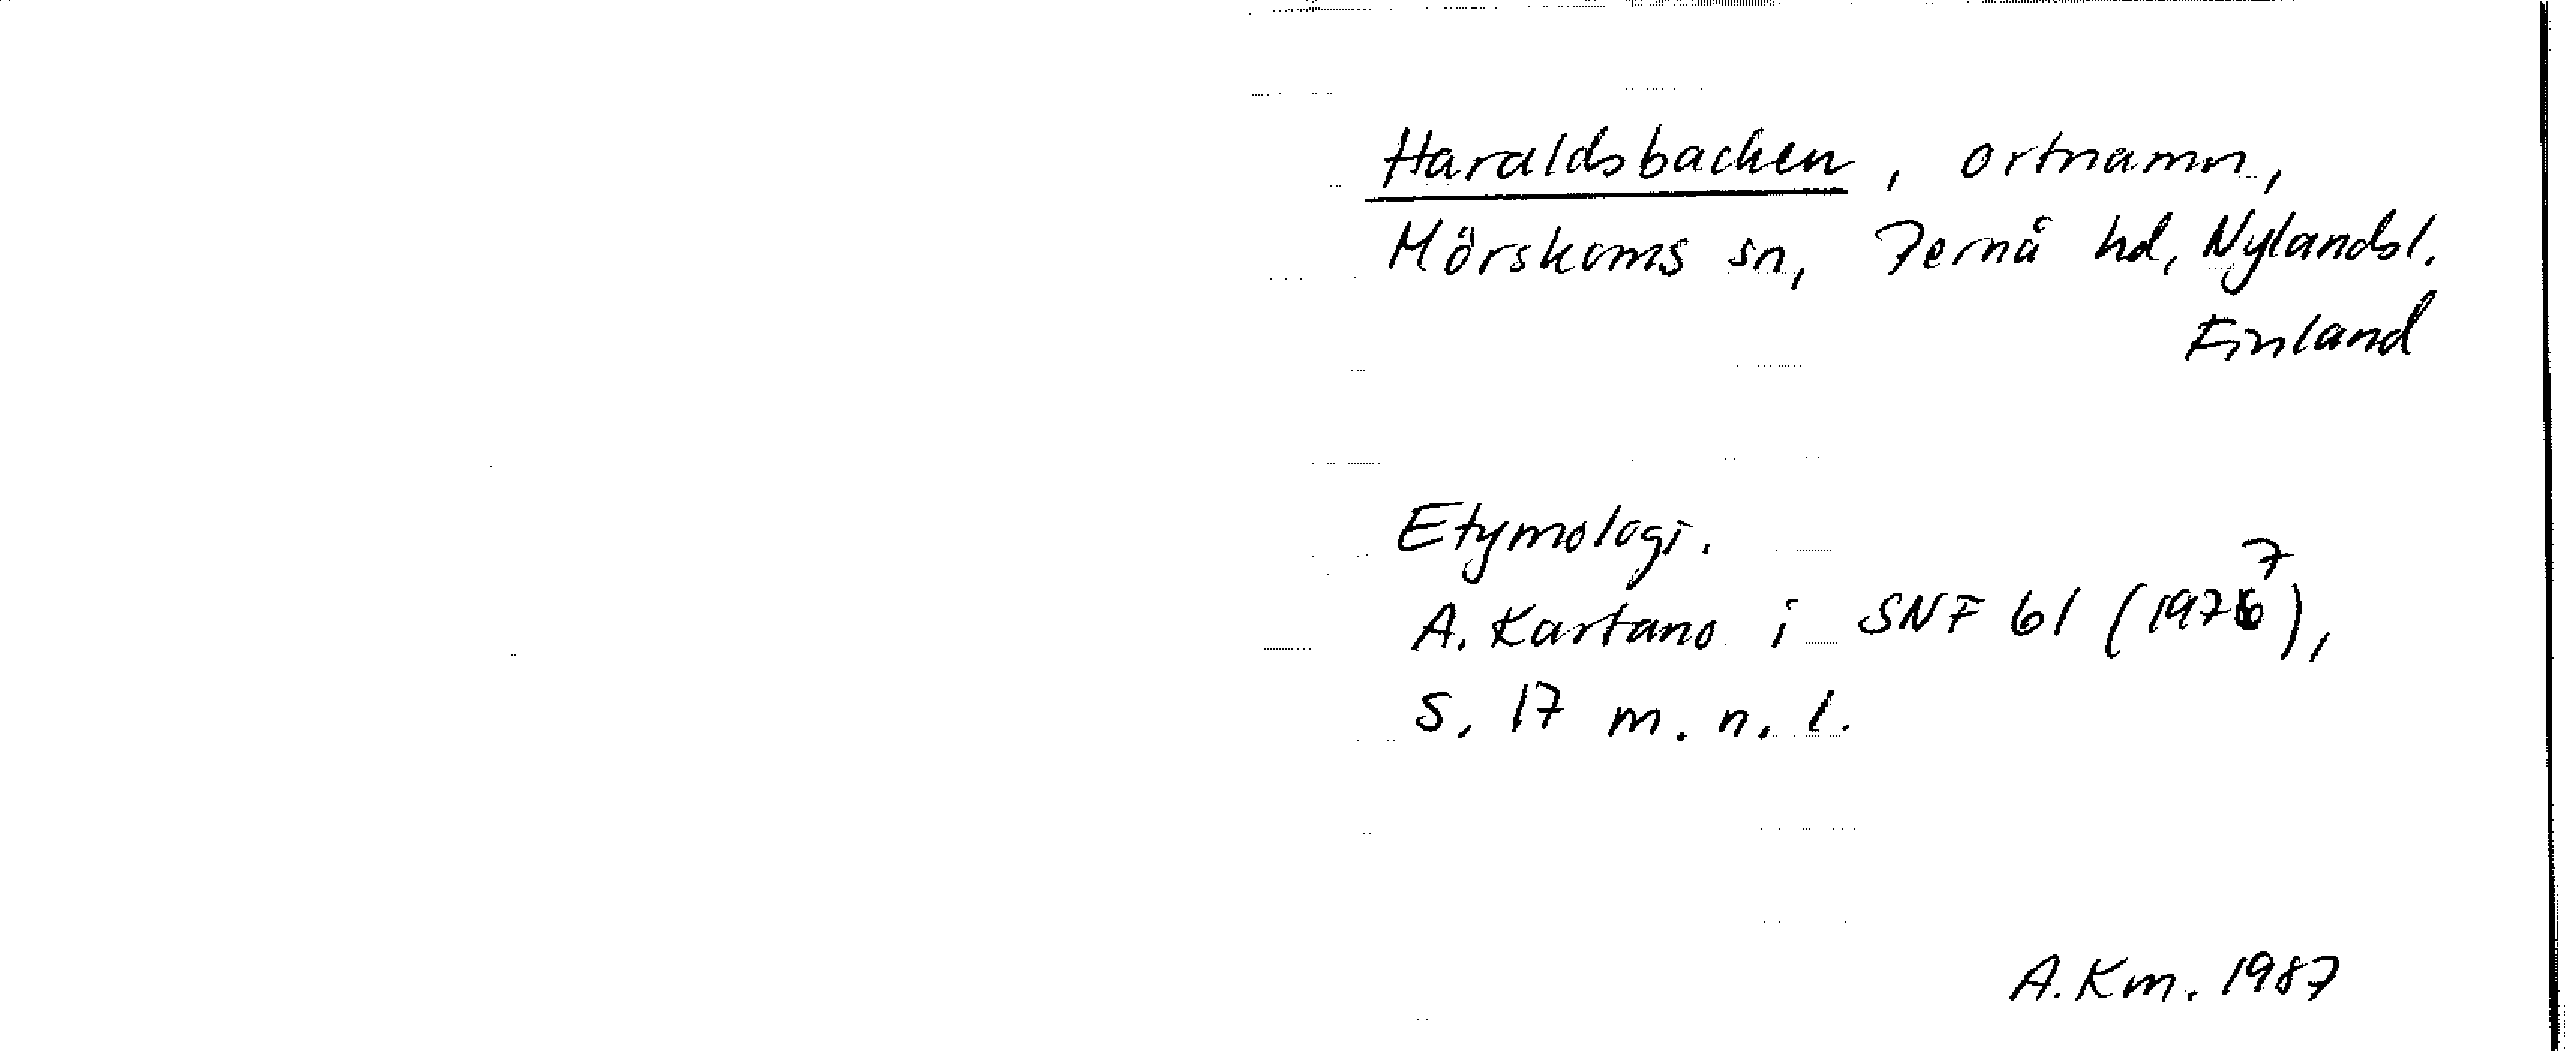 Haraldsbacken, ortnamn,
Mörskoms sn, Pernå hd, Nylandsl.
Finland
Etymologi.
A. Kartano i SNF 61 (1977),
S. 17 m. n. l.
A.Km. 1987